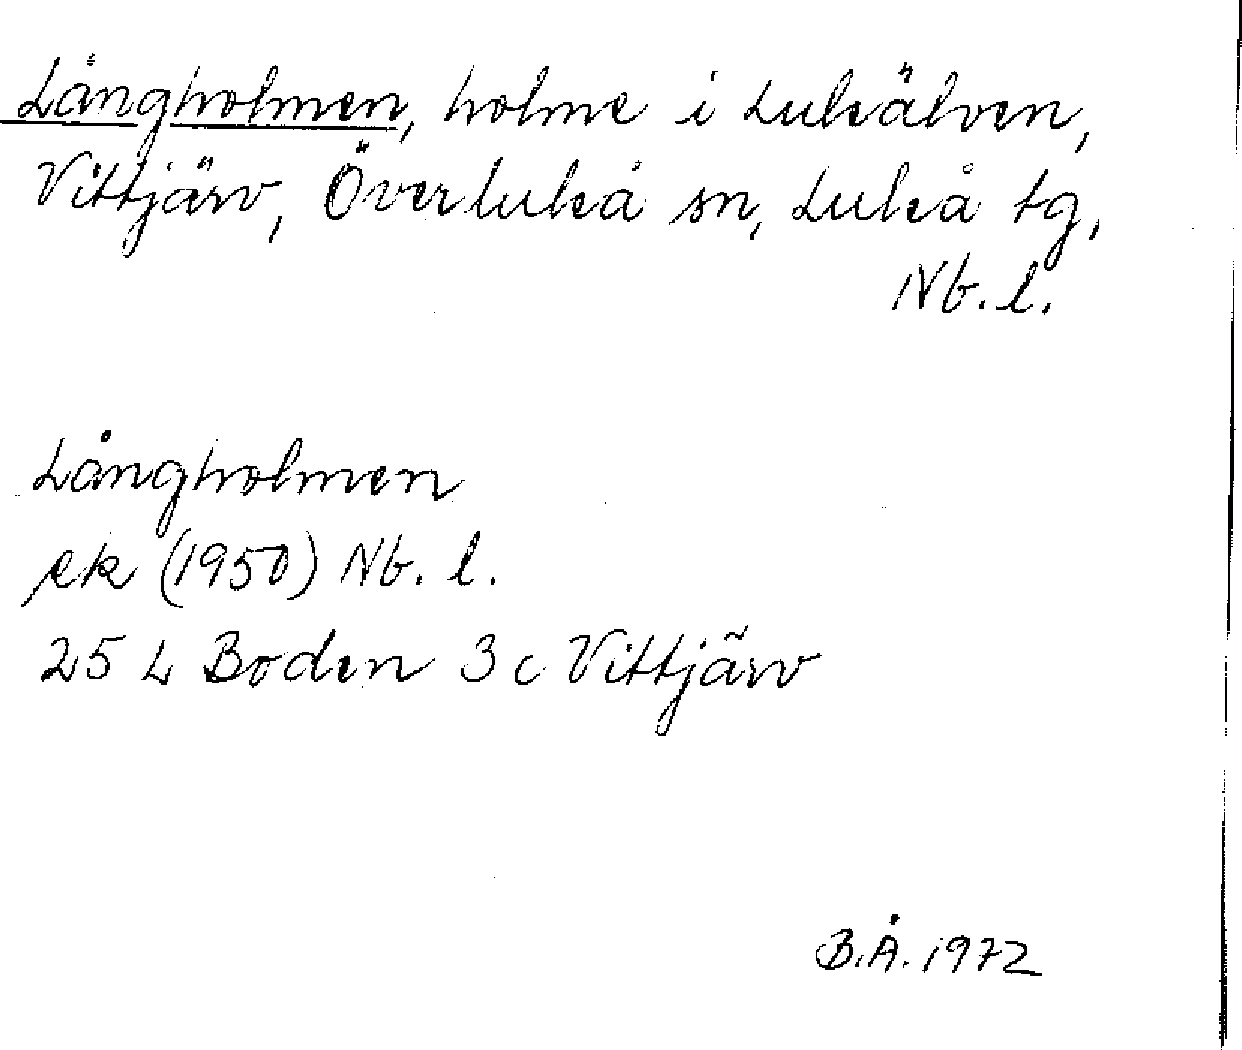 Långholmen, holme i Luleälven,
Vittjärv, Överluleå sn, Luleå tg,
Nb. l.
Långholmen
ek (1950) Nb. l.
25 L Boden 3 c Vittjärv
B.Å. 1972